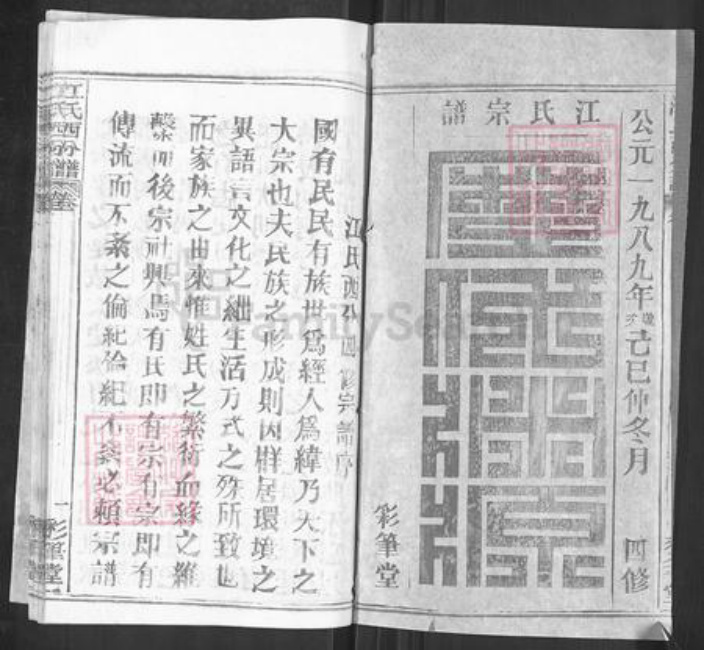 江氏宗譜
公元一九八九年歲次己巳仲冬月 四修
彩筆堂
江氏西分四修宗譜序
國有民民有族世為經人為緯乃天下之
大宗也夫民族之形成則因群居環境之
異語言文化之細生活方式之殊所致也
而家族之由來惟姓氏之繁衍血緣之維
繫而後宗社興焉有氏即有宗有宗即有
傳流而不紊之倫紀倫紀不紊必賴宗譜
江氏西分譜 卷
一 彩筆堂
FamilySearch